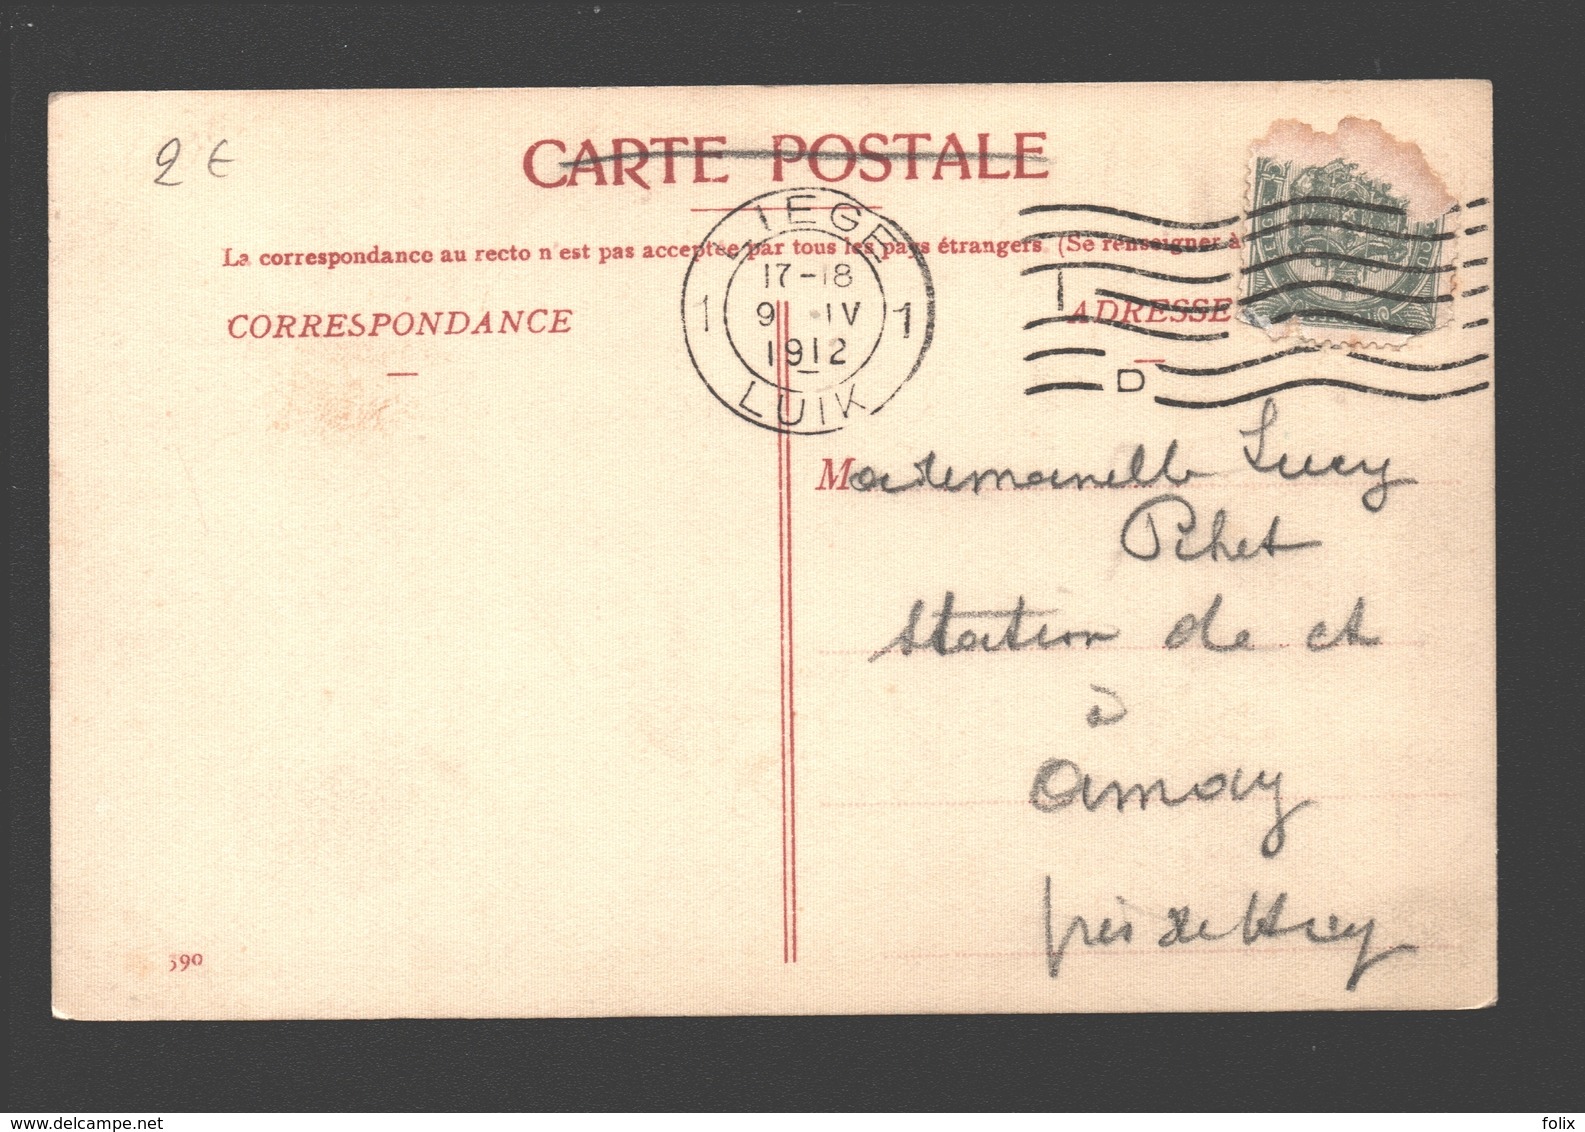 2 €
CARTE POSTALE
La correspondance au recto n'est pas acceptée par tous les pays étrangers (Se renseigner à
LIEGE
17-18
1 9 IV 1
1912
LUIK
1
D
CORRESPONDANCE
ADRESSE
Mademoiselle Lucy
Pihet
Station de ct
à
Amay
près de Huy
390
www.delcampe.net
folix